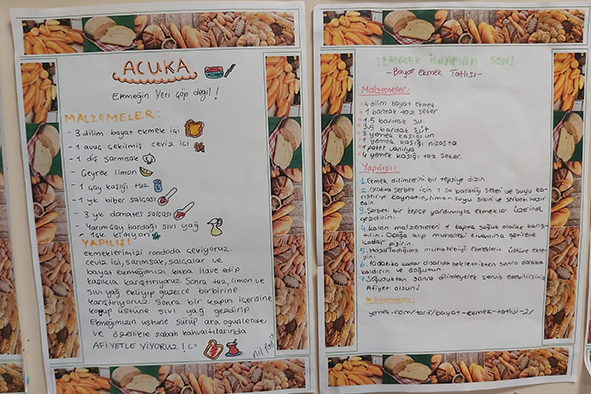 ACUKA
Ekmeğin Yeri Çöp değil!
MALZEMELER:
- 3 dilim bayat ekmek içi
- 1 avuç çekilmiş ceviz içi
- 1 diş sarımsak
- Çeyrek limon
- 1 çay kaşığı tuz
- 1 yk. biber salçası
- 3 yk. domates salçası
- Yarım çay bardağı sıvı yağ
- 1 çk kimyon
YAPILIŞI
Ekmeklerimizi rondoda çekiyoruz.
ceviz içi, sarımsak, salçalar ve
bayat ekmeğimizi kaba ilave edip
kaşıkla karıştırıyoruz. Sonra tuz, limon ve
sıvı yağ ekleyip güzelce birbirine
karıştırıyoruz. Sonra bir kapın içerisine
koyup üstüne sıvı yağ gezdirip
Ekmeğimizin üstüne sürüp ara öğünlerde
ve özellikle sabah kahvaltılarında
AFİYETLE YİYORUZ!
SON!
- Bayat Ekmek Tatlısı -
Malzemeler:
- 4 dilim bayat ekmek
- 1 bardak toz şeker
- 1.5 bardak su
- 3.5 bardak süt
- 3 yemek kaşığı un
- 1 yemek kaşığı nişasta
- 1 paket vanilya
- 4 yemek kaşığı toz şeker
Yapılışı:
1. Ekmek dilimlerini bir tepsiye dizin
2. Ocakta şerbet için 1 su bardağı şekeri ve suyu ka-
rıştırıp kaynatın, limon suyu sıkın ve şerbeti hazır
edin.
3. Şerbeti bir kepçe yardımıyla ekmekler üzerinde
gezdirin.
4. Kalan malzemeleri 1 kapta soğuk olarak karış-
tırın. Ocağa alıp muhallebi kıvamına gelene
kadar pişirin.
5. Hazırladığımız muhallebiyi ekmeklerin üstüne
6. dakika kadar dolapta beklettikten sonra
kaldırın ve soğutun.
7. Soğuduktan sonra dilimleyerek servis edebilirsiniz
Afiyet olsun!
yemek.com/tarif/bayat-ekmek-tatlisi-2/